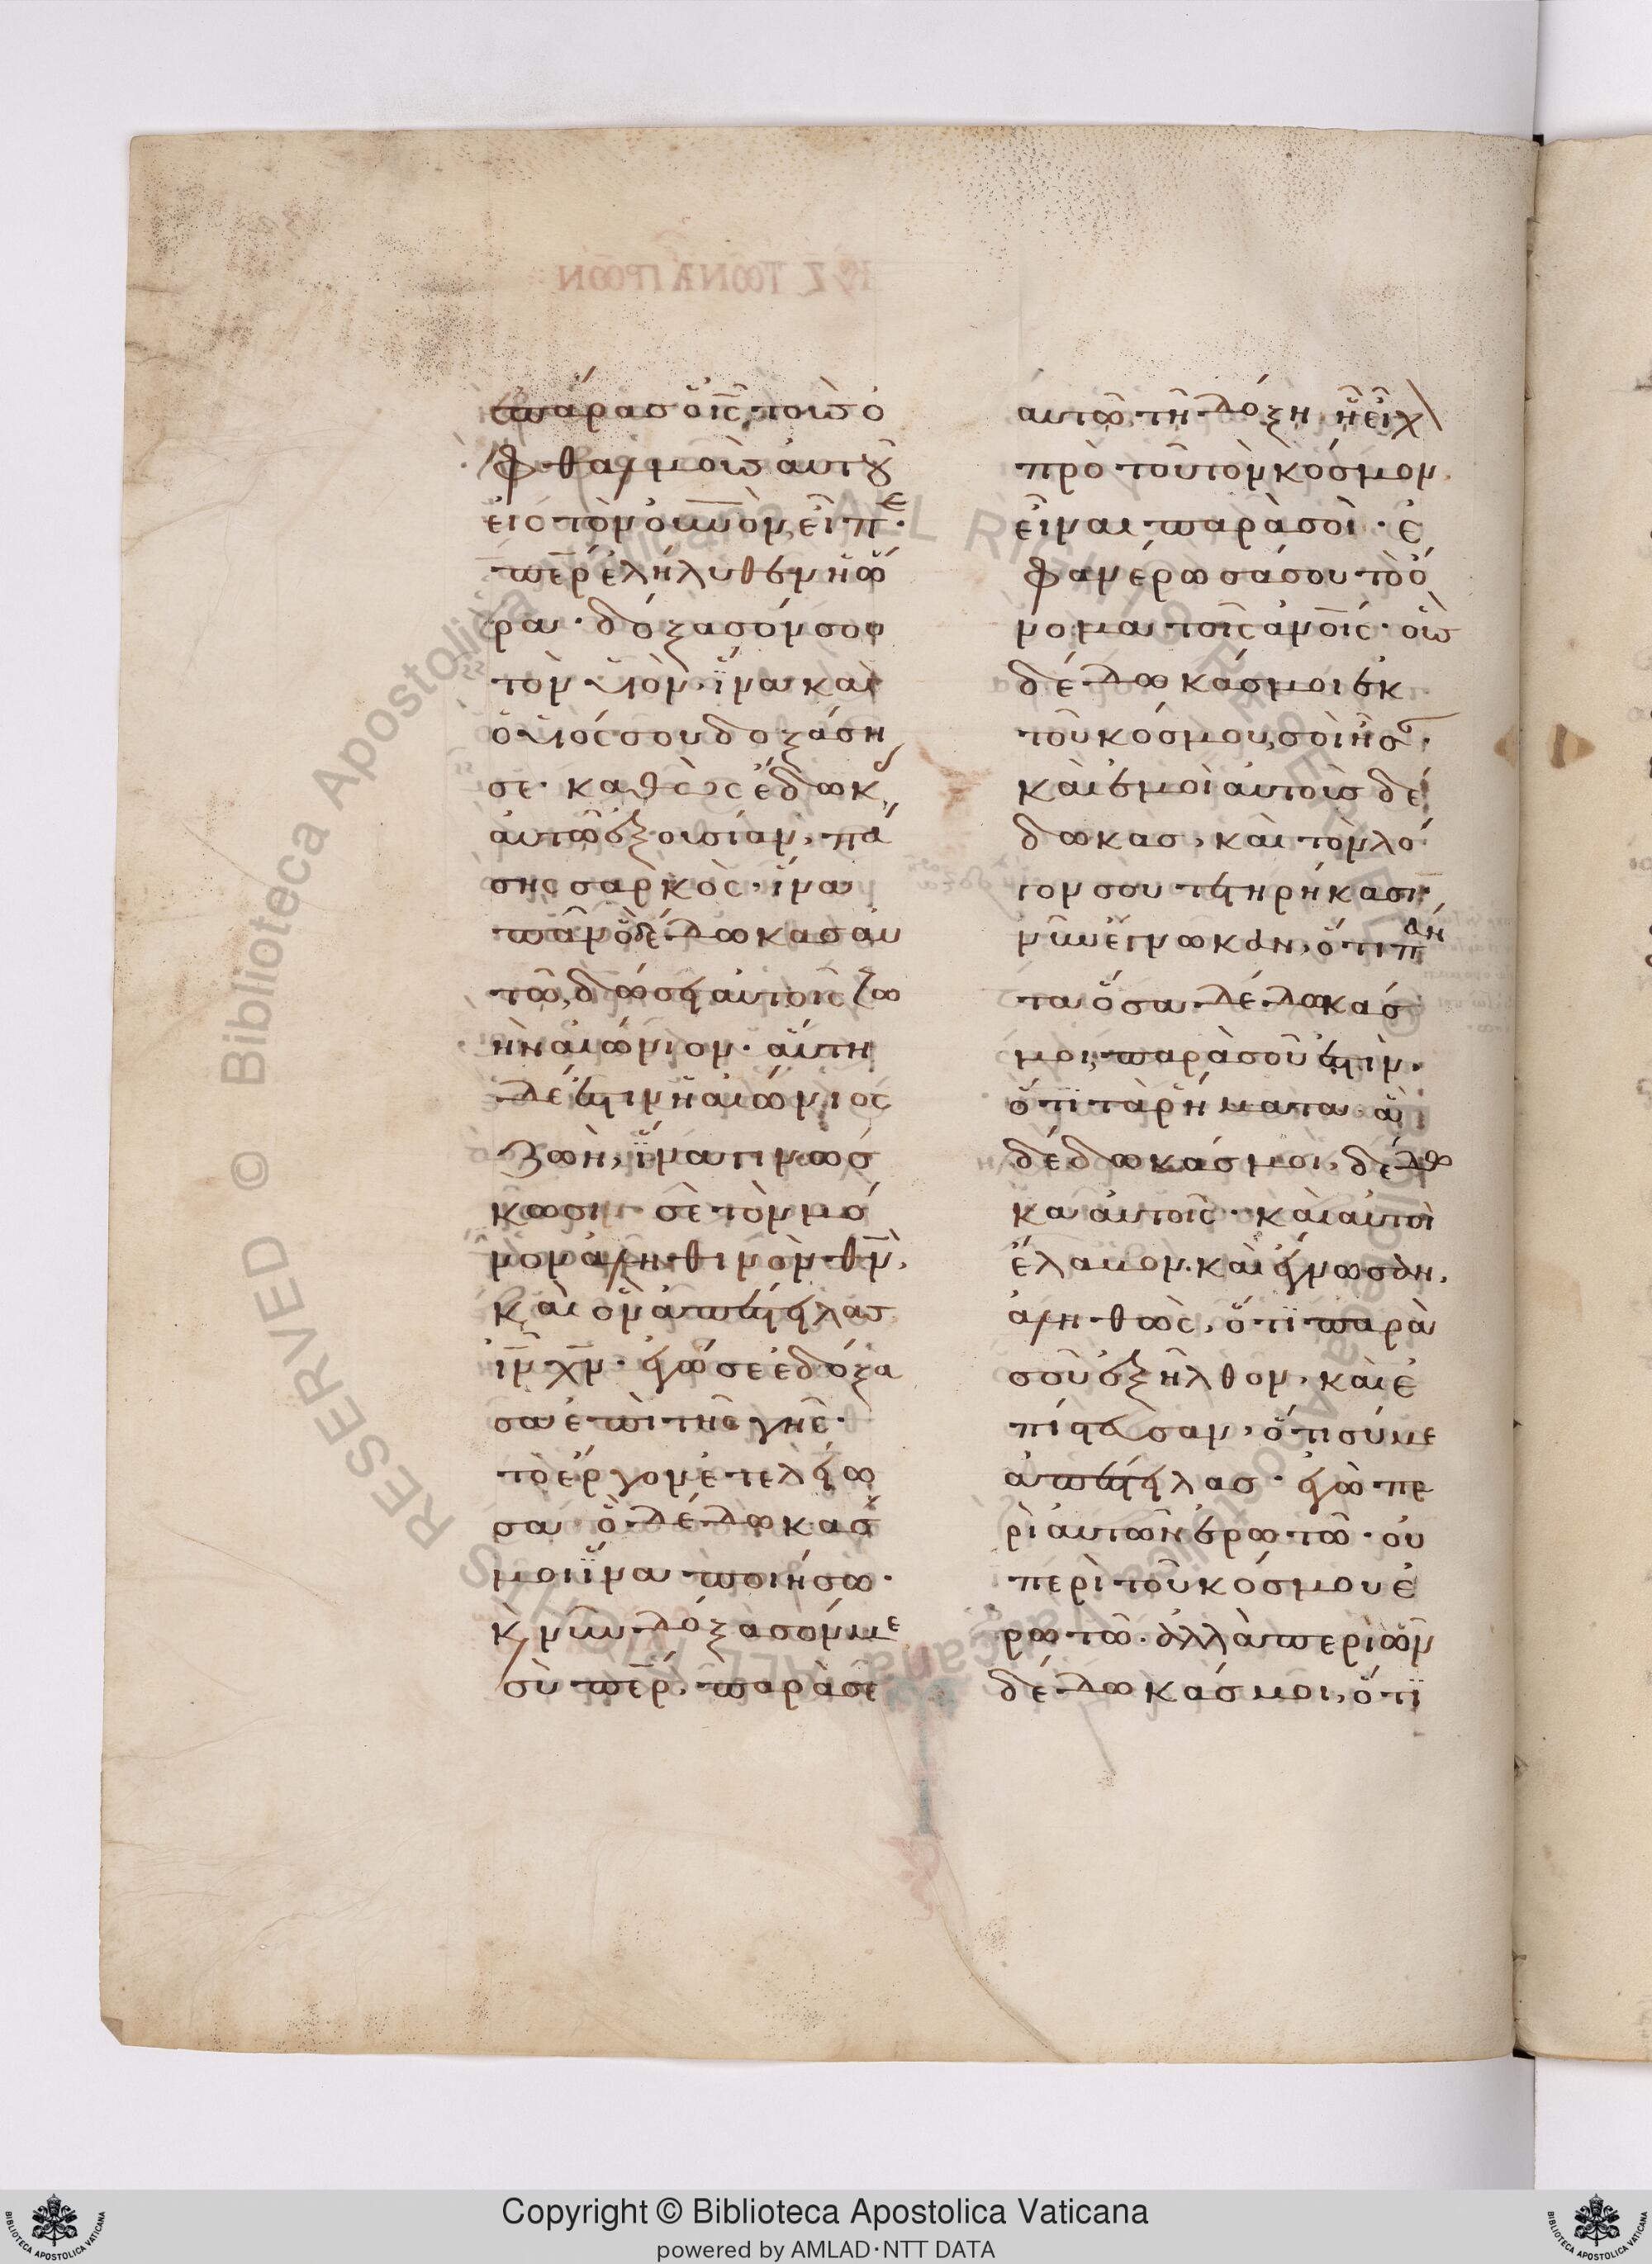 ἐπάρας ὁ ΙϹ τοὺς ὀ
φθαλμοὺς αὐτοῦ
εἰς τὸν οὐνὸν, εἶπε·
περ ἐλήλυθεν ἡ ὥ
ρα· δόξασόν σου
τὸν υἱὸν, ἵνα καὶ
ὁ υἱός σου δοξάση
σε· καθὼς ἔδωκ
αὐτῶ ἐξουσίαν, πά
σης σαρκὸς, ἵνα
πᾶν ὃ δέδωκας αυ
τῶ, δώσει αὐτοῖς ζω
ὴν αἰώνιον· αὕτη
δέ ἐστιν ἡ αἰώνιος
ζωὴ, ἵνα γινώσ
κωσι σὲ τὸν μό
νον ἀληθινὸν θν,
καὶ ὃν ἀπέστειλας
ιν χν· ἐγώ σε ἐδόξα
σα ἐπὶ τῆς γῆς·
τὸ ἔργον ἐτελείω
σα ὃ δέδωκάς
μοι ἵνα ποιήσω·
κ νῦν δόξασόν με
σὺ περ, παρὰ σε
αυτῶ, τῆ δόξη ἧ εἶχ
πρὸ τοῦ τὸν κόσμον
εἶναι παρὰ σοὶ· ἐ
φανέρωσά σου τὸ ὄ
νομα τοῖς ανοις· οὓς
δέδωκάς μοι ἐκ
τοῦ κόσμου, σοὶ ἦσ·
καὶ ἐμοὶ αὐτοὺς δέ
δωκας, καὶ τὸν λό
γον σου τετηρήκασι·
νῦν ἔγνωκαν, ὅτι πάν
τα ὅσα δέδωκάς
μοι, παρὰ σοῦ ἐστιν·
ὅτι τὰ ῥήματα ἃ
δέδωκάς μοι, δέδω
κα αὐτοῖς· καὶ αὐτοὶ
ἔλαβον· καὶ ἔγνωσαν,
ἀληθῶς, ὅτι παρὰ
σοῦ ἐξῆλθον, καὶ ἐ
πίστευσαν, ὅτι σύ με
ἀπέστειλας· ἐγὼ πε
ρὶ αὐτῶν ἐρωτῶ· οὐ
περὶ τοῦ κόσμου ἐ
ρωτῶ· ἀλλὰ περὶ ὧν
δέδωκάς μοι, ὅτι
Copyright © Biblioteca Apostolica Vaticana
powered by AMLAD·NTT DATA